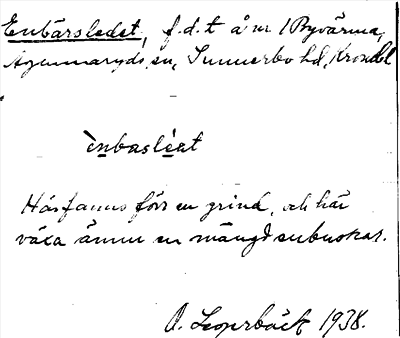 Enbärsledet, f.d. t å nr 1 Byvärma,
Agunnaryds sn, Sunnerbo hd, Kronobl
ènbasléat
Här fanns förr en grind, och här
växa ännu en mängd enbuskar.
O. Leoperbäck 1938.